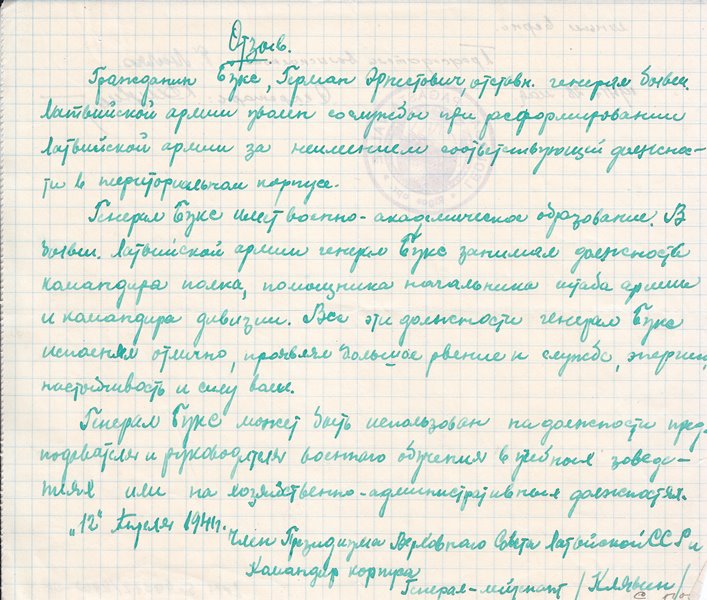 Отзыв.
Гражданин Букс, Герман Эрнстович отставн. генерал бывш.
Латвийской армии уволен со службы при расформировании
Латвийской армии за неимением соответствующий должнос-
ти в территориальном корпусе.
Генерал Букс имеет военно-академическое образование. В
бывш. Латвийской армии генерал Букс занимал должность
командира полка, помощника начальника штаба армии
и командира дивизии. Все эти должности генерал Букс
исполнял отлично, проявляя большое рвение к службе, энергию,
настойчивость и силу воли.
Генерал Букс может быть использован на должности преп-
подавателя и руководителя военного обучения в учебных заведе-
ниях или на хозяйственно-административных должностях.
„12" Апреля 1941г.
Член Президиума Верховного Совета Латвийской ССР и
Командир корпуса
Генерал-лейтенант /Клявин/